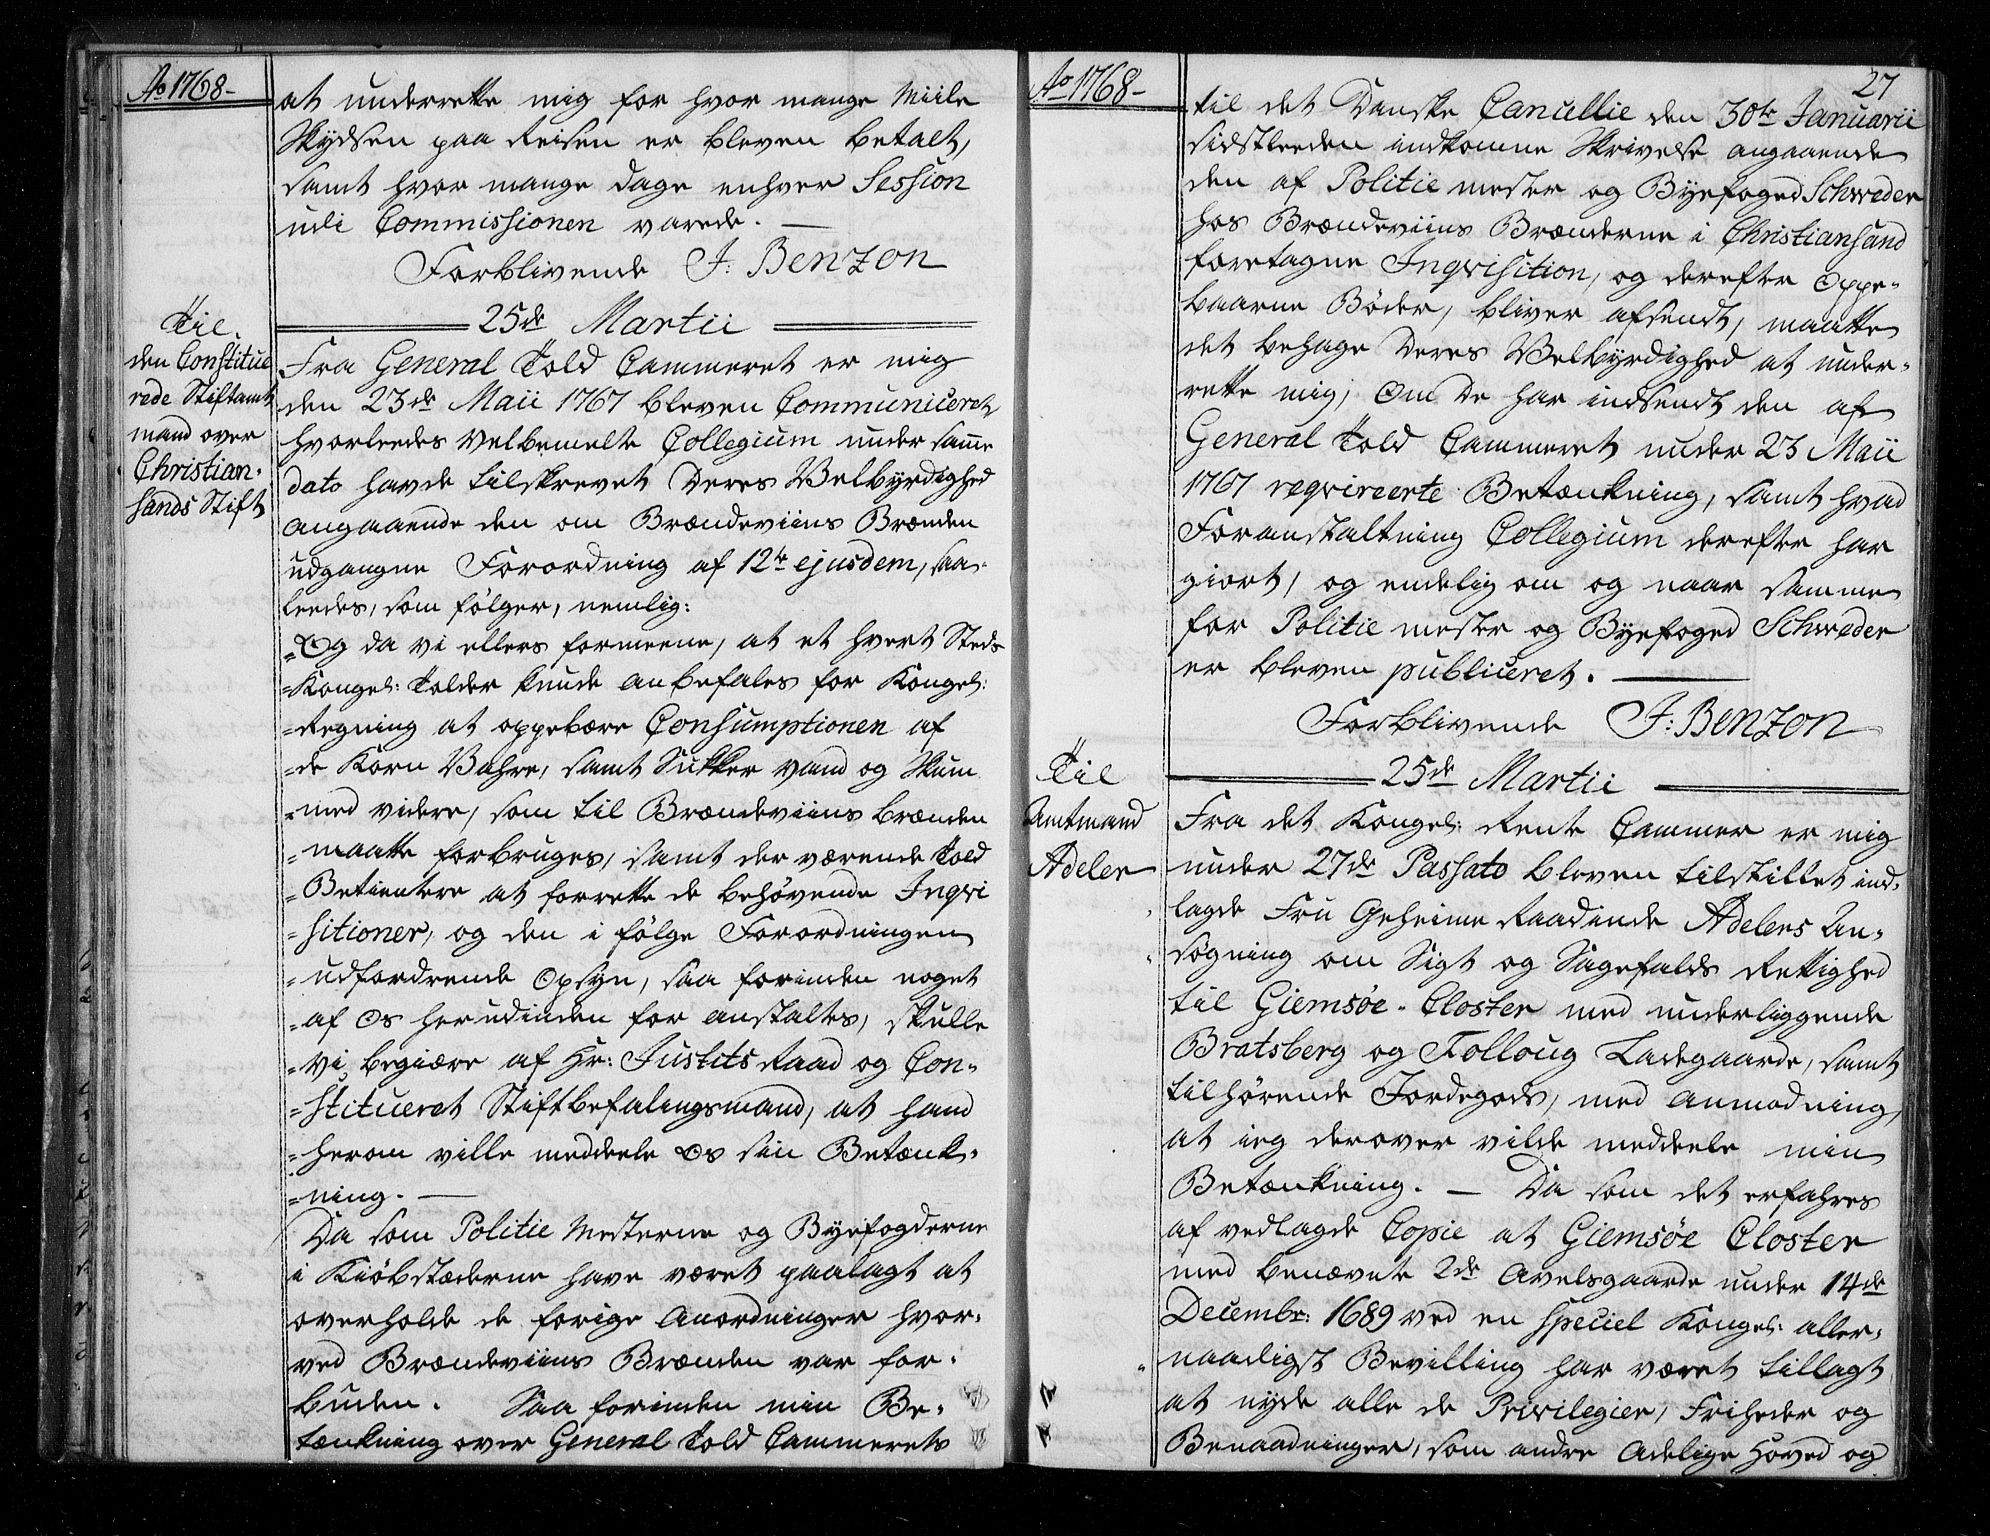 Ao 1768-
at underrette mig for hvor mange Miile
Skydsen paa Reisen er bleven betalt,
samt hvor mange dage enhver Session
udi Commissionen varede. —
Forblivende J: Benzon
25de Martii
Til
den Constitue
rede Stiftamt
mand over
Christian-
sands Stift
Fra General Told Cammeret er mig
den 23de Maii 1767 bleven Communiceret
hvorleedes Velbemelte Collegium under samme
dato havde tilskrevet Deres Velbyrdighed
angaaende den om Brændeviins Brænden
udgangne Forordning af 12te ejusdem, saa-
leedes, som følger, nemlig:
=Og da vi ellers formeene, at et hvert Steds
=Kongel: Tolder kunde anbefales for Kongel:
=Regning at oppebære Consumptionen af
=de Korn Vahre, samt Sukker vand og Skum
=med videre, som til Brændeviins brænden
=maatte forbruges, samt der værende Told
=Betientere at forrette de behøvende Inqvi
=sitioner, og den i følge Forordningen
=udfordrende Opsyn, saa forinden noget
=af Os herudinden for anstaltes, skulle
=vi begiære af Hr: Justits Raad og Con-
=stitueret Stiftbefalingsmand, at hand
=herom ville meddeele Os sin Betænk-
=ning. —
Da som Politie Mesterne og Byefogderne
i Kiøbstæderne have været paalagt at
overholde de forige Anordninger hvor-
ved Brændeviins Brænden var for-
buden. Saa forinden min Be-
tænkning over General Told Cammerets
Ao 1768-
27
til det Danske Cancellie den 30te Januarii
sidstleeden indkomne Skrivelse angaaende
den af Politie mester og Byefoged Schweder
hos Brændeviins Brænderne i Christiansand
foretagne Inqvisition, og derefter Oppe-
baarne Bøder, bliver afsendt, maatte
det behage Deres Velbyrdighed at under-
rette mig, Om De har indsendt den af
General Told Cammeret under 23 Maii
1767 reqvireerte Betænkning, samt hvad
Foranstaltning Collegium derefter har
giort, og endelig om og naar samme
for Politie mester og Byefoged Schweder
er bleven publiceret. —
Forblivende J: Benzon
25de Martii
Til
Amtmand
Adeler
Fra det Kongel: Rente Cammer er mig
under 27de Passato bleven tilstillet ind-
lagde Fru Geheime Raadinde Adelers An-
søgning om Sigt og Sagefalds Rettighed
til Giemsøe-Closter med underliggende
Bratsberg og Folloug Ladegaarde, samt
tilhørende Jordegods, med anmodning,
at ieg derover vilde meddeele min
Betænkning. — Da som det erfahres
af vedlagde Copie at Giemsøe Closter
med benævnte 2de Avelsgaarde under 14de
Decembr: 1689 ved en Speciel Kongel: aller-
naadigst Bevilling har været tillagt
at nyde alle de Privilegier, Friheder og
Benaadninger, som andre Adelige Hoved og